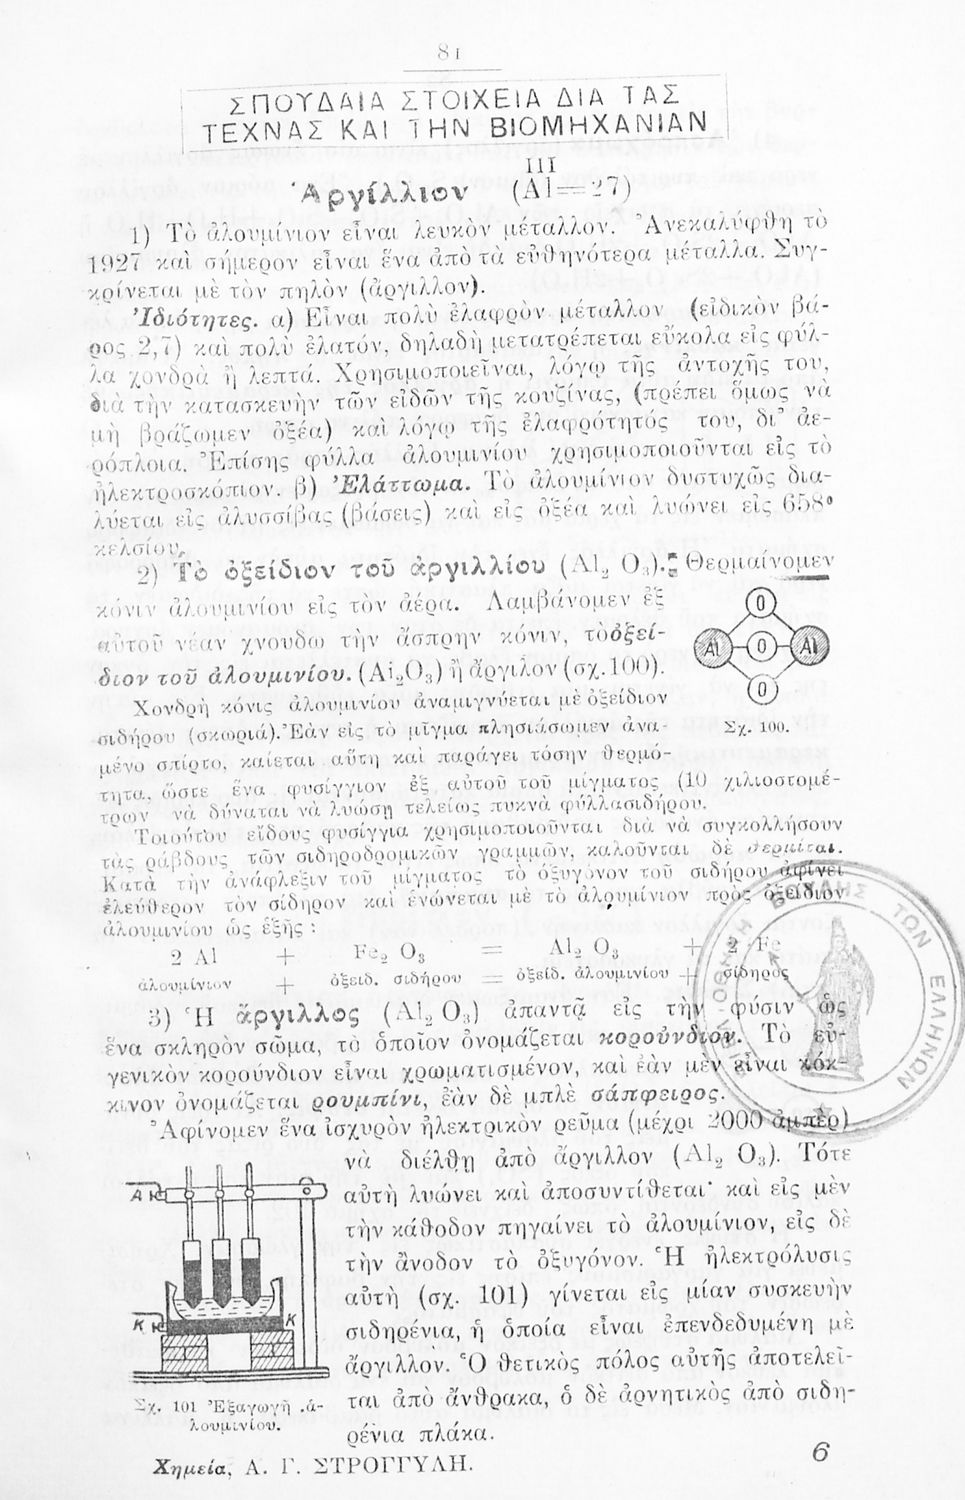 81
ΣΠΟΥΔΑΙΑ ΣΤΟΙΧΕΙΑ ΔΙΑ ΤΑΣ
ΤΕΧΝΑΣ ΚΑΙ ΤΗΝ ΒΙΟΜΗΧΑΝΙΑΝ
III
Ἀργίλλιον (Al=27)
1) Τὸ ἀλουμίνιον εἶναι λευκὸν μέταλλον. Ἀνεκαλύφθη τὸ
1927 καὶ σήμερον εἶναι ἕνα ἀπὸ τὰ εὐθηνότερα μέταλλα. Συγ-
κρίνεται μὲ τὸν πηλὸν (ἀργιλλον).
Ἰδιότητες. α) Εἶναι πολὺ ἐλαφρὸν μέταλλον (εἰδικὸν βά-
ρος 2,7) καὶ πολὺ ἐλατόν, δηλαδὴ μετατρέπεται εὔκολα εἰς φύλ-
λα χονδρὰ ἢ λεπτά. Χρησιμοποιεῖναι, λόγῳ τῆς ἀντοχῆς του,
διὰ τὴν κατασκευὴν τῶν εἰδῶν τῆς κουζίνας, (πρέπει ὅμως νὰ
μὴ βράζωμεν ὀξέα) καὶ λόγῳ τῆς ἐλαφρότητός του, δι' ἀε-
ρόπλοια. Ἐπίσης φύλλα ἀλουμινίου χρησιμοποιοῦνται εἰς τὸ
ἠλεκτροσκόπιον. β) Ἐλάττωμα. Τὸ ἀλουμίνιον δυστυχῶς δια-
λύεται εἰς ἀλυσσίβας (βάσεις) καὶ εἰς ὀξέα καὶ λυώνει εἰς 658°
κελσίου.
2) Τὸ ὀξείδιον τοῦ ἀργιλλίου (Al₂ O₃). Θερμαίνομεν
κόνιν ἀλουμινίου εἰς τὸν ἀέρα. Λαμβάνομεν ἐξ
αὐτοῦ νέαν χνουδω τὴν ἄσπρην κόνιν, τὸ ὀξεί-
διον τοῦ ἀλουμινίου. (Al₂O₃) ἢ ἄργιλον (σχ. 100).
O
Al O Al
O
Σχ. 100.
Χονδρὴ κόνις ἀλουμινίου ἀναμιγνύεται μὲ ὀξείδιον
σιδήρου (σκωριά). Ἐὰν εἰς τὸ μῖγμα πλησιάσωμεν ἀνα-
μένο σπίρτο, καίεται αὕτη καὶ παράγει τόσην θερμό-
τητα, ὥστε ἕνα φυσίγγιον ἐξ αὐτοῦ τοῦ μίγματος (10 χιλιοστομέ-
τρων νὰ δύναται νὰ λυώσῃ τελείως πυκνὰ φύλλασιδήρου.
Τοιούτου εἴδους φυσίγγια χρησιμοποιοῦνται διὰ νὰ συγκολλήσουν
τὰς ράβδους τῶν σιδηροδρομικῶν γραμμῶν, καλοῦνται δὲ θερμίται.
Κατὰ τὴν ἀνάφλεξιν τοῦ μίγματος τὸ ὀξυγόνον τοῦ σιδήρου ἀφίνει
ἐλεύθερον τὸν σίδηρον καὶ ἑνώνεται μὲ τὸ ἀλουμίνιον πρὸς ὀξείδιον
ἀλουμινίου ὡς ἑξῆς :
2 Al + Fe₂ O₃ = Al₂ O₃ + 2 Fe
ἀλουμίνιον + ὀξειδ. σιδήρου = ὀξείδ. ἀλουμινίου + σίδηρος
3) Ἡ ἄργιλλος (Al₂ O₃) ἀπαντᾷ εἰς τὴν φύσιν ὡς
ἕνα σκληρὸν σῶμα, τὸ ὁποῖον ὀνομάζεται κορούνδιον. Τὸ εὐ-
γενικὸν κορούνδιον εἶναι χρωματισμένον, καὶ ἐὰν μὲν εἶναι κόκ-
κινον ὀνομάζεται ρουμπίνι, ἐὰν δὲ μπλὲ σάπφειρος.
Ἀφίνομεν ἕνα ἰσχυρὸν ἠλεκτρικὸν ρεῦμα (μέχρι 2000 ἀμπὲρ)
νὰ διέλθῃ ἀπὸ ἄργιλλον (Al₂ O₃). Τότε
αὐτὴ λυώνει καὶ ἀποσυντίθεται· καὶ εἰς μὲν
τὴν κάθοδον πηγαίνει τὸ ἀλουμίνιον, εἰς δὲ
τὴν ἄνοδον τὸ ὀξυγόνον. Ἡ ἠλεκτρόλυσις
αὐτὴ (σχ. 101) γίνεται εἰς μίαν συσκευὴν
σιδηρένια, ἡ ὁποία εἶναι ἐπενδεδυμένη μὲ
ἄργιλλον. Ὁ θετικὸς πόλος αὐτῆς ἀποτελεῖ-
ται ἀπὸ ἄνθρακα, ὁ δὲ ἀρνητικὸς ἀπὸ σιδη-
ρένια πλάκα.
A
K K
Σχ. 101 Ἐξαγωγὴ ἀ-
λουμινίου.
ΒΙΒΛΙΟΘΗΚΗ ΒΟΥΛΗΣ ΤΩΝ ΕΛΛΗΝΩΝ
Χημεία, Α. Γ. ΣΤΡΟΓΓΥΛΗ.
6